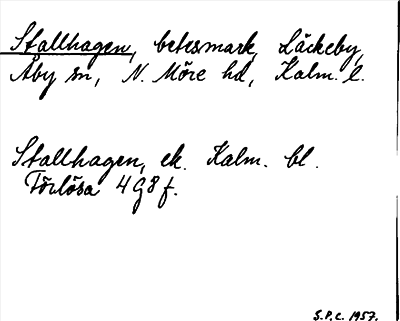 Stallhagen, betesmark, Läckeby,
Åby sn, N. Möre hd, Kalm. l.
Stallhagen, ek. Kalm. bl.
Förlösa 4G8f.
S.P.C. 1957.